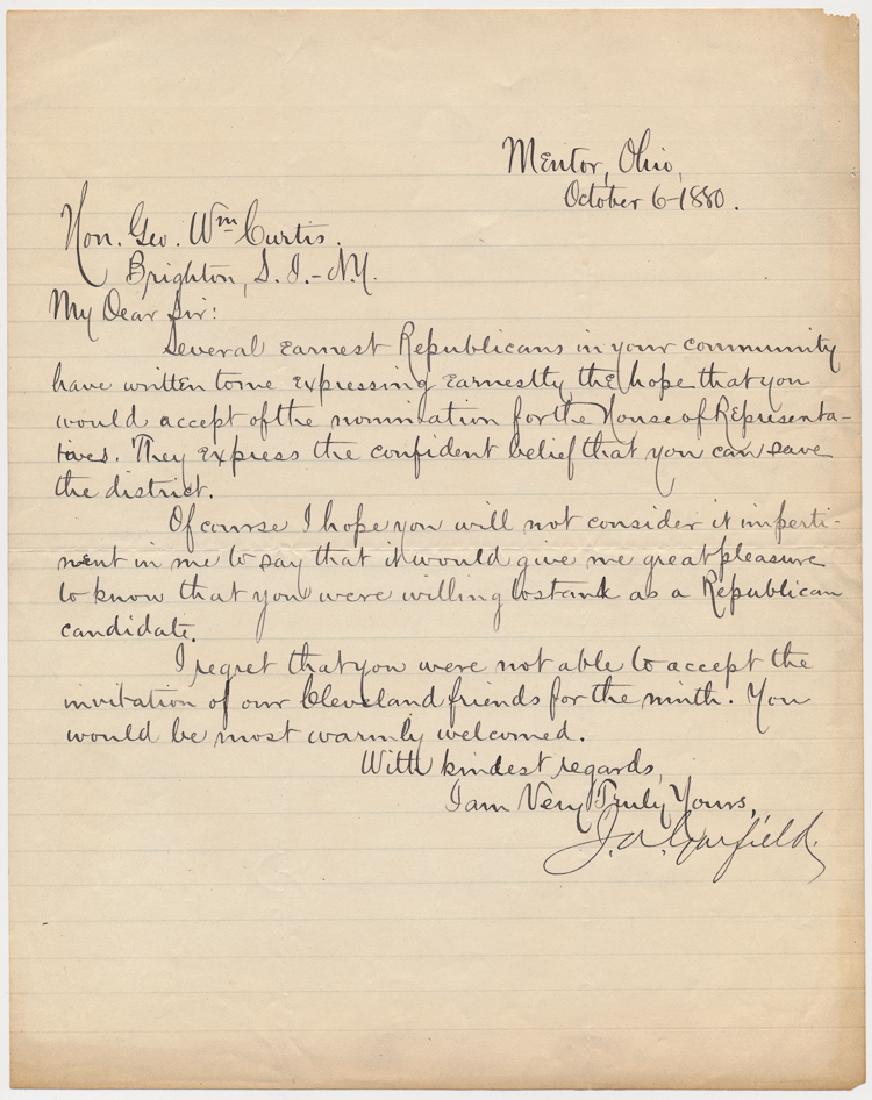 Mentor, Ohio,
October 6-1880.
Hon. Geo. Wm Curtis.
Brighton, S. I. - N.Y.
My Dear Sir:
Several earnest Republicans in your community
have written to me expressing earnestly the hope that you
would accept of the nomination for the House of Representa-
tives. They express the confident belief that you can save
the district.
Of course I hope you will not consider it imperti-
nent in me to say that it would give me great pleasure
to know that you were willing to stand as a Republican
candidate.
I regret that you were not able to accept the
invitation of our Cleveland friends for the ninth. You
would be most warmly welcomed.
With kindest regards,
I am Very Truly Yours,
J. A. Garfield.